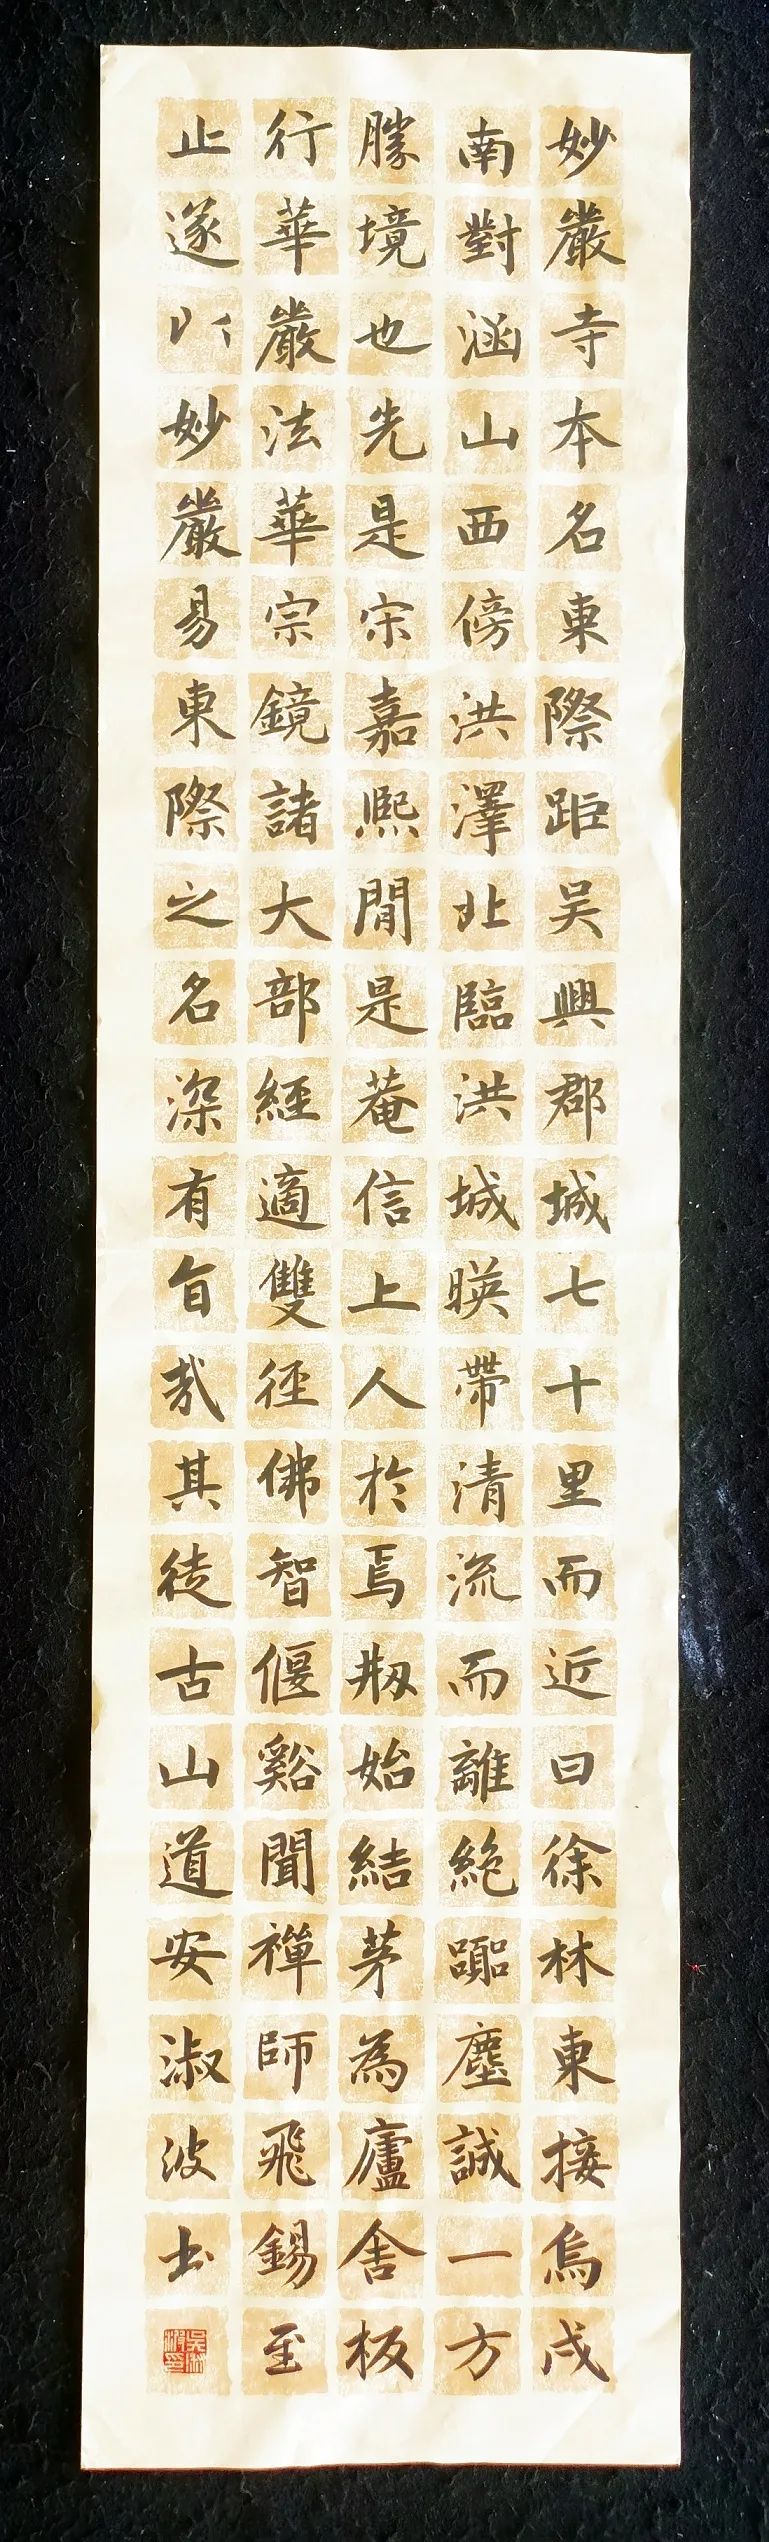 妙嚴寺本名東際距吳興郡城七十里而近曰徐林東接烏戍
南對涵山西傍洪澤北臨洪城暎帶清流而離絕嚻塵誠一方
勝境也先是宋嘉熙間是菴信上人於焉刱始結茅為廬舍板
行華嚴法華宗鏡諸大部經適雙徑佛智偃谿聞禪師飛錫至
止遂以妙嚴易東際之名深有旨哉其徒古山道安淑波书